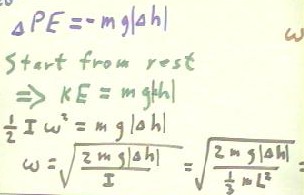 ΔPE = - m g |Δh|
ω
Start from rest
⇒ KE = m g |Δh|
½ I ω² = m g |Δh|
ω = √(2 m g |Δh| / I) = √(2 m g |Δh| / (⅓ m L²)) =